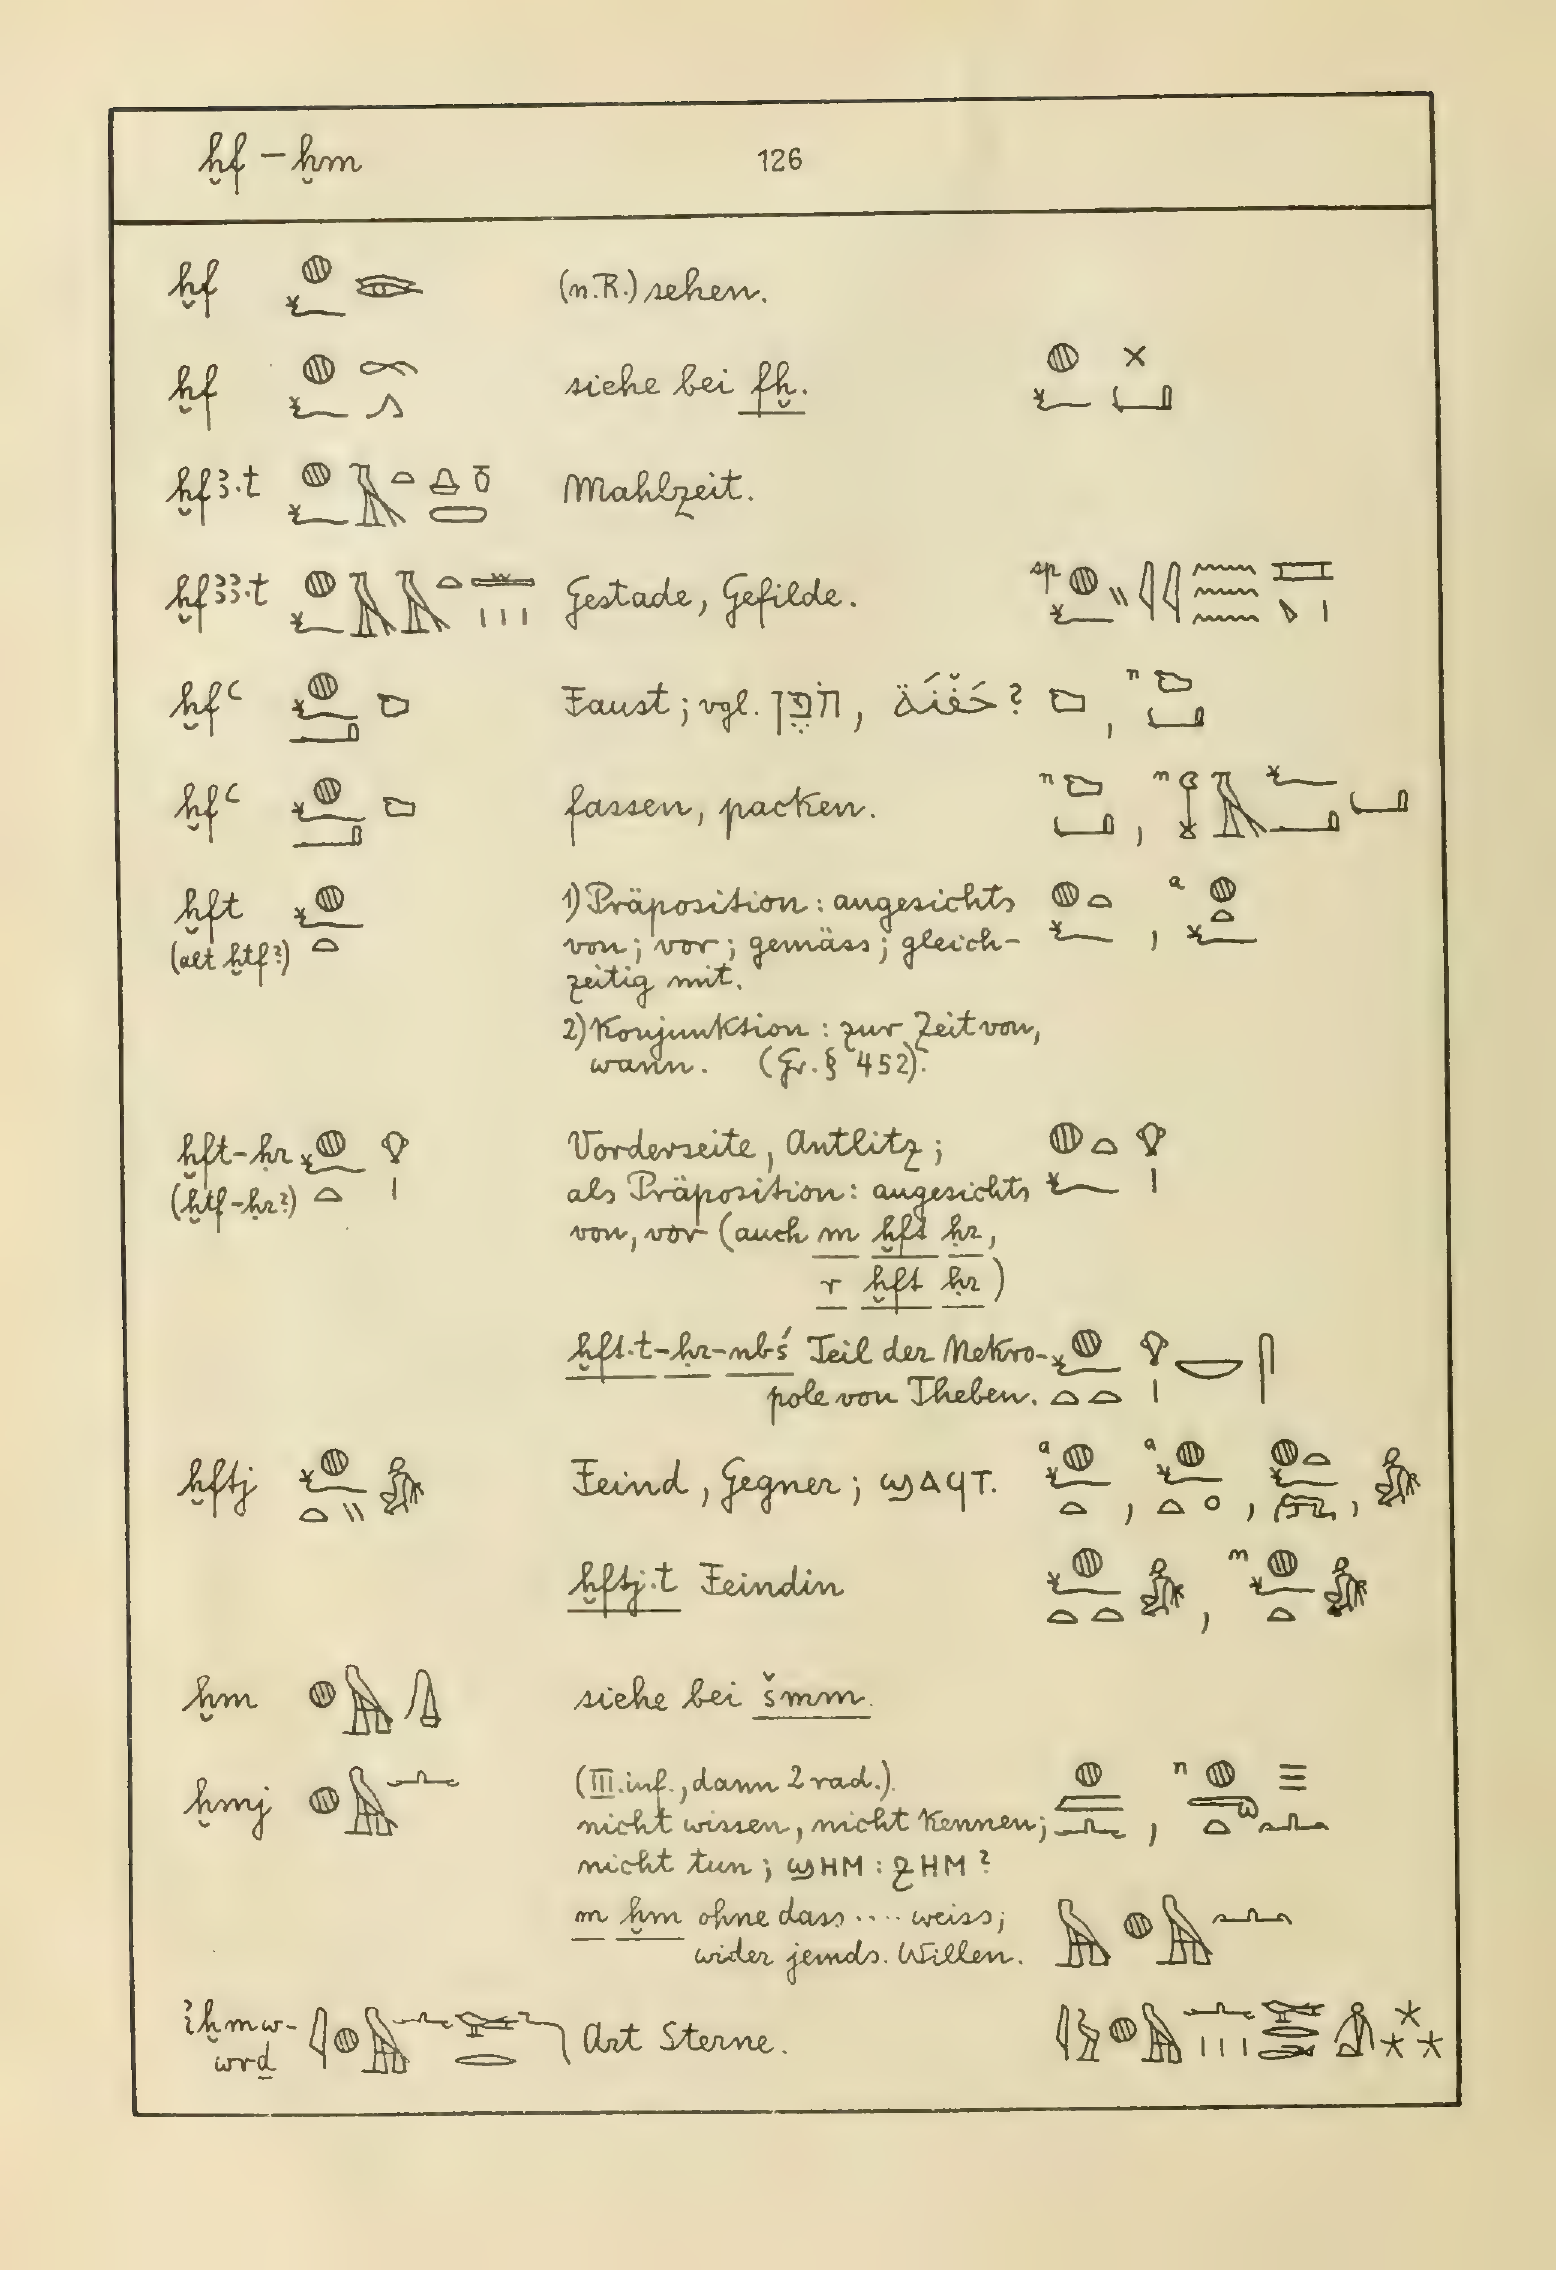 ḫf – ḫm 126
ḫf (n.R.) sehen.
ḫf siehe bei fḫ.
ḫfꜣ.t Mahlzeit.
ḫfꜣꜣ.t Gestade, Gefilde. sp
ḫfꜥ Faust; vgl. חֹפֶן, حَفْنَة? , n
ḫfꜥ fassen, packen. n , n
ḫft 1) Präposition: angesichts , a
(alt ḫtf?) von; vor; gemäss; gleich-
zeitig mit.
2) Konjunktion: zur Zeit von,
wann. (Gr. § 452).
ḫft-ḥr Vorderseite, Antlitz;
(ḫtf-ḥr?) als Präposition: angesichts
von, vor (auch m ḫft ḥr,
r ḫft ḥr)
ḫft.t-ḥr-nb-ś Teil der Nekro-
pole von Theben.
ḫftj Feind, Gegner; ϣⲁϥⲧ. a , a , ,
ḫftj.t Feindin , m
ḫm siehe bei šmm.
ḫmj (III.inf., dann 2rad.). n
nicht wissen, nicht kennen; ,
nicht tun; ϣⲏⲙ : ϩⲏⲙ?
m ḫm ohne dass .... weiss;
wider jemds. Willen.
ꞽḫmw-
wrḏ Art Sterne.